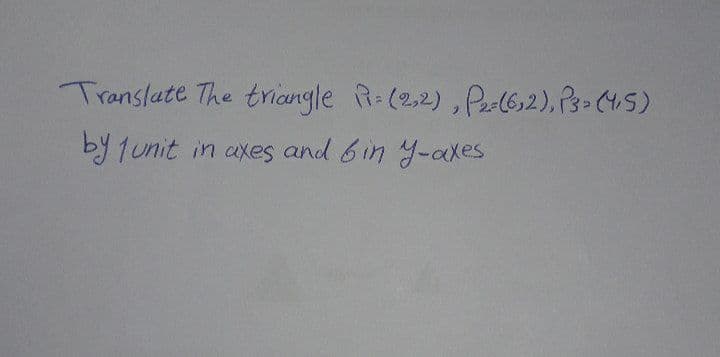 Translate The triangle P1=(2,2), P2=(6,2), P3=(4,5)
by 1 unit in axes and 6 in y-axes